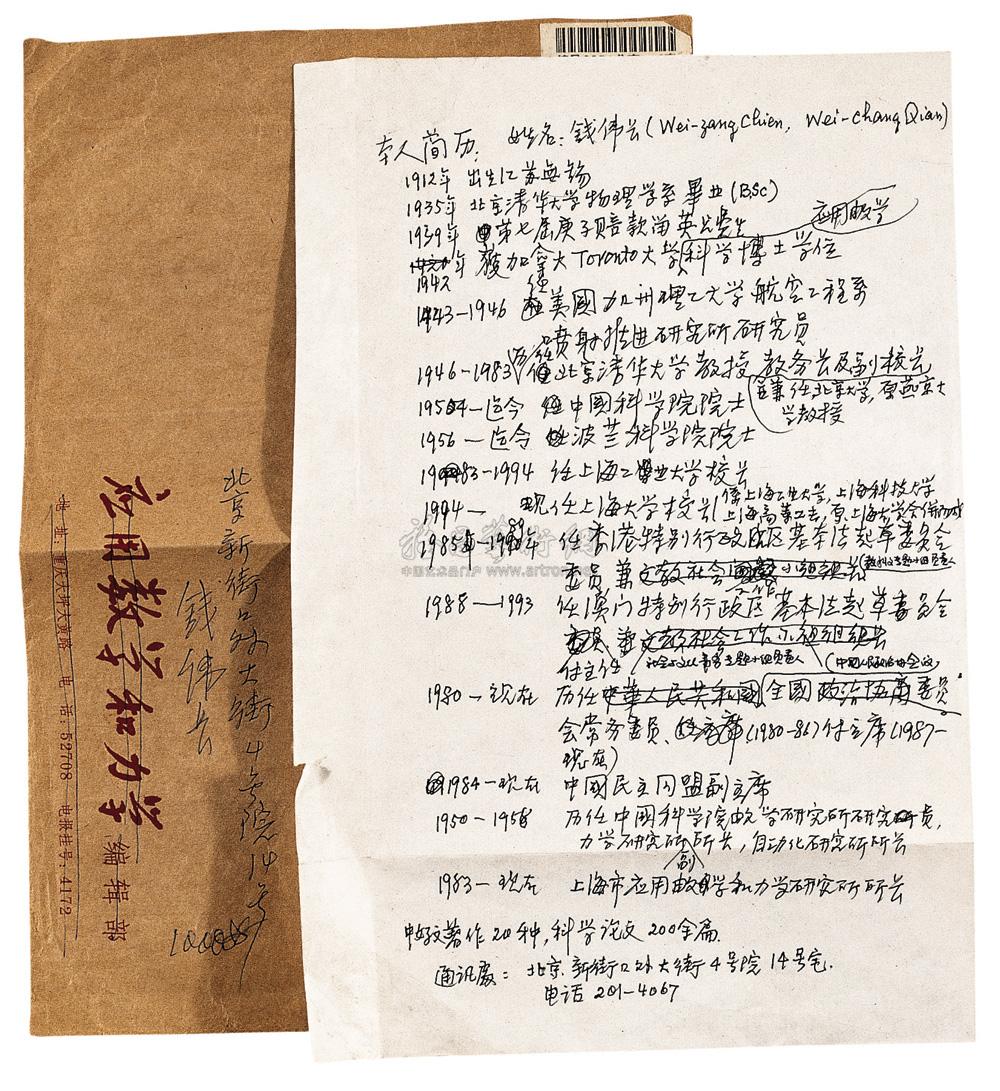 本人简历: 姓名: 錢伟长 (Wei-zang Chien, Wei-chang Qian)
1912年 出生江苏無锡
1935年 北京清华大学物理学系畢业 (BSc)
1939年 第七届庚子賠款留英公費生
应用数学
1942年 獲加拿大Toronto大学科学博士学位
1943-1946 任美國加州理工大学航空工程系
喷射推进研究所研究员
1946-1983 历任北京清华大学教授 教务长及副校长
兼任北京大学,原燕京大
学教授
1954-迄今 中國科学院院士
1956-迄今 波兰科学院院士
1983-1994 任上海工业大学校长
1994- 现任上海大学校长 係上海工业大学,上海科技大学
上海高等工专,原上海大学合併而成
1985年-1989年 任香港特別行政区基本法起草委员会
委员兼文教社会 小组组长
1988-1993 任澳门特别行政区基本法起草委员会
委员 兼文教社会工作小组组长
付主任
(中國人民政治协会议)
1980-现在 历任中華人民共和國全國政治协商委员
会常务委员、 (1980-86)付主席(1987-
现在)
1984-现在 中国民主同盟副主席
1950-1958 历任中國科学院数学研究所研究员,
力学研究所副所长,自动化研究所所长
1983-现在 上海市应用数学和力学研究所所长
著作20种,科学论文200余篇.
通讯處: 北京.新街口外大街4号院14号宅.
电话 201-4067
北京新街口外大街4号院14号
钱伟长
应用数学和力学
编辑部
电话:52708 电报挂号:4172